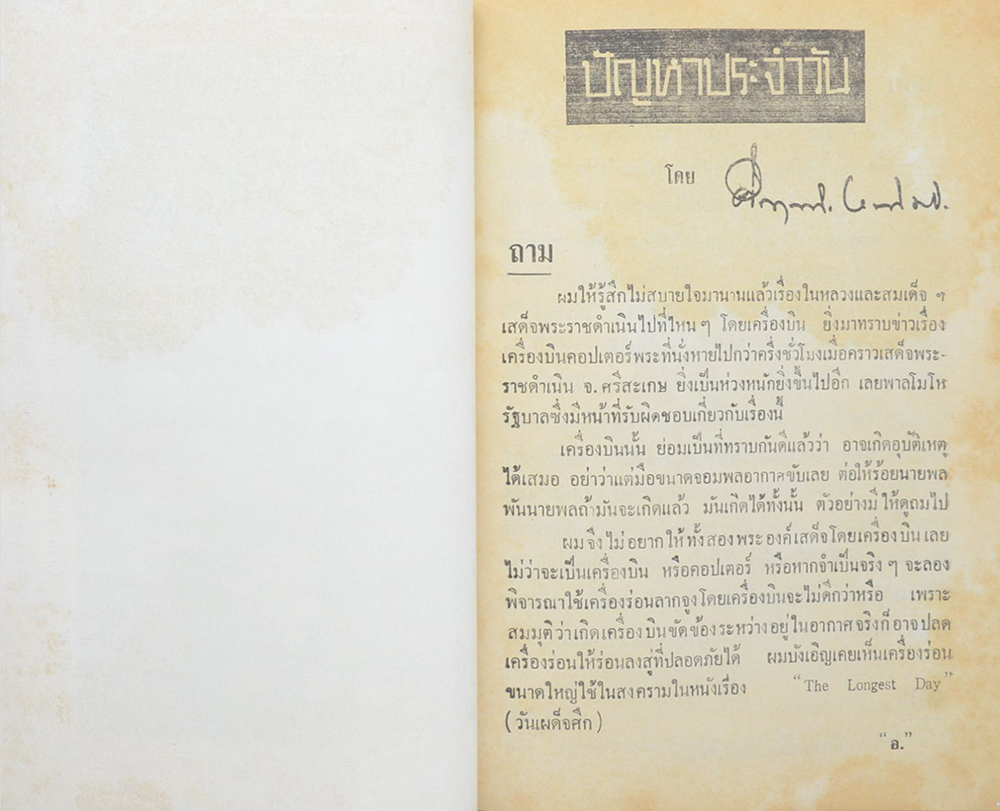 ปัญหาประจำวัน
โดย
ถาม
ผมให้รู้สึกไม่สบายใจมานานแล้วเรื่องในหลวงและสมเด็จ ฯ
เสด็จพระราชดำเนินไปที่ไหน ๆ โดยเครื่องบิน ยิ่งมาทราบข่าวเรื่อง
เครื่องบินคอปเตอร์พระที่นั่งหายไปกว่าครึ่งชั่วโมงเมื่อคราวเสด็จพระ-
ราชดำเนิน จ. ศรีสะเกษ ยิ่งเป็นห่วงหนักยิ่งขึ้นไปอีก เลยพาลโมโห
รัฐบาลซึ่งมีหน้าที่รับผิดชอบเกี่ยวกับเรื่องนี้
เครื่องบินนั้น ย่อมเป็นที่ทราบกันดีแล้วว่า อาจเกิดอุบัติเหตุ
ได้เสมอ อย่าว่าแต่มือขนาดจอมพลอากาศขับเลย ต่อให้ร้อยนายพล
พันนายพลถ้ามันจะเกิดแล้ว มันเกิดได้ทั้งนั้น ตัวอย่างมีให้ดูถมไป
ผมจึงไม่อยากให้ทั้งสองพระองค์เสด็จโดยเครื่องบินเลย
ไม่ว่าจะเป็นเครื่องบิน หรือคอปเตอร์ หรือหากจำเป็นจริง ๆ จะลอง
พิจารณาใช้เครื่องร่อนลากจูงโดยเครื่องบินจะไม่ดีกว่าหรือ เพราะ
สมมุติว่าเกิดเครื่องบินขัดข้องระหว่างอยู่ในอากาศจริงก็อาจปลด
เครื่องร่อนให้ร่อนลงสู่ที่ปลอดภัยได้ ผมบังเอิญเคยเห็นเครื่องร่อน
ขนาดใหญ่ใช้ในสงครามในหนังเรื่อง “The Longest Day”
(วันเผด็จศึก)
“อ.”